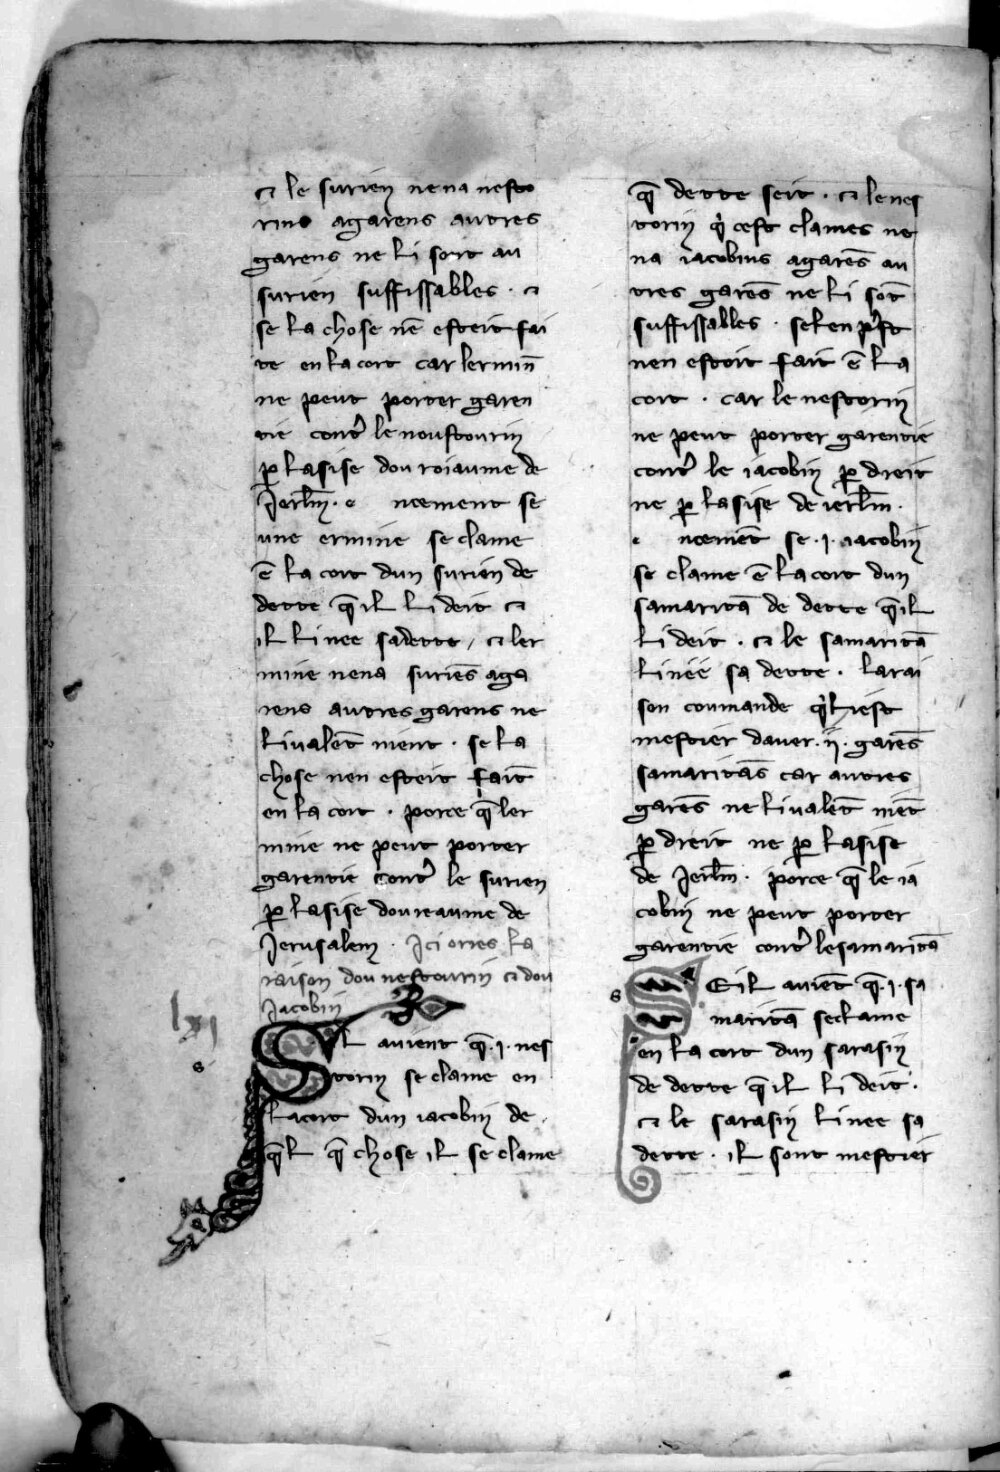 ⁊ le surien nena nesto
rins agarens autres
garens ne li sont au
surien suffissables · ⁊
se la chose nē esteit fai
te en la cort car lermin
ne peut porter garen
tie contˀ le noustourin
ꝑ lasise dou roiaume de
Jerlm̄ · e ncement se
une ermine se clame
ē la cort dun surien de
dette q̄ il li deit ⁊
il li nee sa dette / ⁊ ler
mine nena suriēs aga
rens autres garens ne
li ualēt nient · se la
chose nen esteit fait
en la cort · porce q̄ ler
mine ne peut porter
garentie contˀ le surien
ꝑ lasise dou reaume de
Jerusalem · Ici orres la
raison dou nestourin ⁊ dou
Jacobin
lxi
s
Sil auient q̄ ·i· nes
torin se clame en
la cort dun iacobin de
q̄l q̄ chose il se clame
q̄ dette seit · ⁊ le nes
torin qͥ cest clames ne
na iacobins agarēs au
tres garēs ne li sōt
suffissables · sel en pͥst
nen estoit fait ē la
cort · car le nestorin
ne peut porter garentie
contˀ le iacobin ꝑ dreit
ne ꝑ lasise de ierlm̄ ·
e ncemēt se ·i· iacobin
se clame ē la cort dun
samaritā de dette q̄ il
li deit · ⁊ le samaritā
li nee sa dette · la rai
son coumande qͥl li est
mestier dauer ·ii· garēs
samaritās car autres
garēs ne li ualēt niēt
ꝑ dreit ne ꝑ lasise
de Jerlm̄ · porce q̄ le ia
cobin ne peut porter
garentie contˀ le samaritā
s
S E il auiēt q̄ ·i· sa
maritā se clame
en la cort dun sarasin
de dette q̄ il li deit ·
⁊ le sarasin li nee sa
dette · il sont mestier